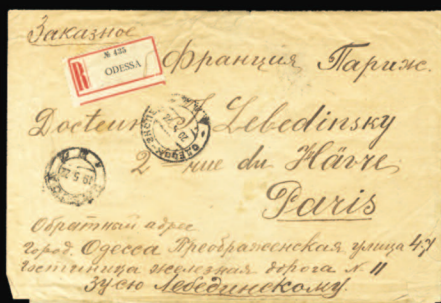 Заказное
№ 435
R ODESSA
Франция Париж.
Docteur J. Lebedinsky
2 rue du Hâvre
Paris
Обратный адрес
город. Одесса Преображенская улица
Гостинница железная дорога № 11
Лебединскому.